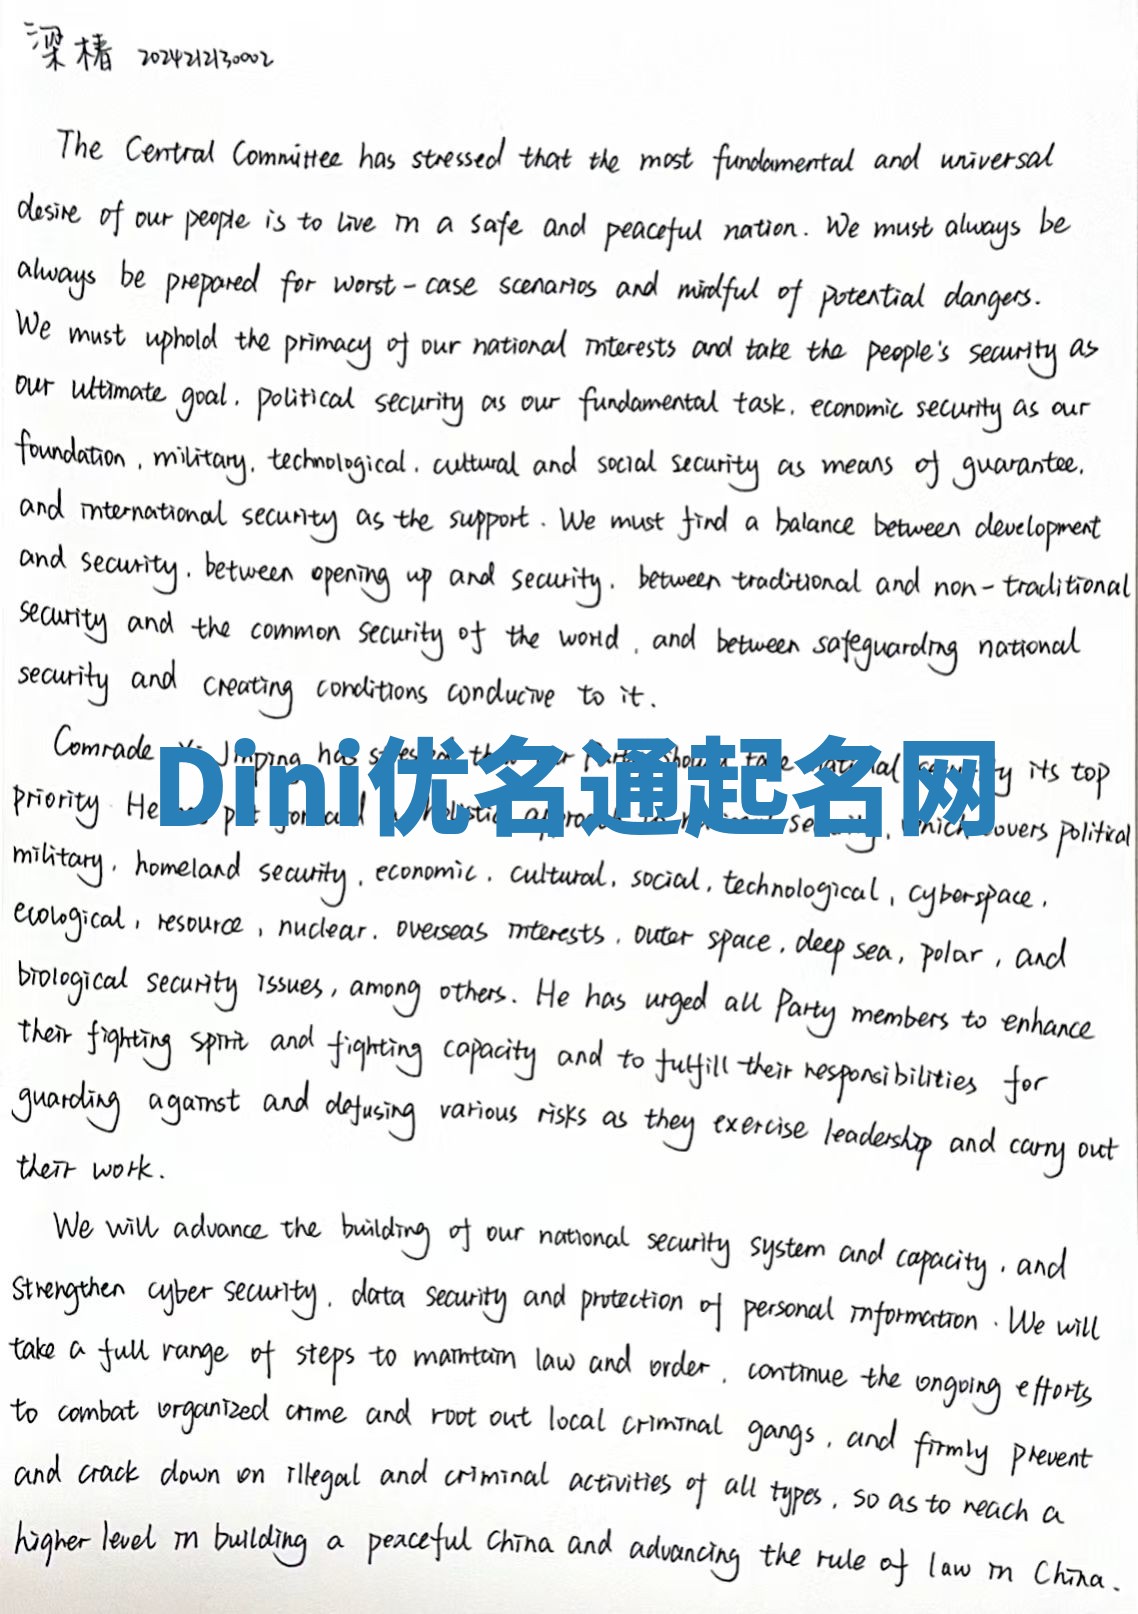 梁椿 2024212130002
The Central Committee has stressed that the most fundamental and universal
desire of our people is to live in a safe and peaceful nation. We must always be
always be prepared for worst-case scenarios and mindful of potential dangers.
We must uphold the primacy of our national interests and take the people's security as
our ultimate goal, political security as our fundamental task, economic security as our
foundation, military, technological, cultural and social security as means of guarantee,
and international security as the support. We must find a balance between development
and security, between opening up and security, between traditional and non-traditional
security and the common security of the world, and between safeguarding national
security and creating conditions conducive to it.
Comrade Jinping has its top
Dini优名通起名网
priority. He which covers political
military, homeland security, economic, cultural, social, technological, cyberspace,
ecological, resource, nuclear, overseas interests, outer space, deep sea, polar, and
biological security issues, among others. He has urged all Party members to enhance
their fighting spirit and fighting capacity and to fulfill their responsibilities for
guarding against and defusing various risks as they exercise leadership and carry out
their work.
We will advance the building of our national security system and capacity, and
strengthen cyber security, data security and protection of personal information. We will
take a full range of steps to maintain law and order, continue the ongoing efforts
to combat organized crime and root out local criminal gangs, and firmly prevent
and crack down on illegal and criminal activities of all types, so as to reach a
higher level in building a peaceful China and advancing the rule of law in China.